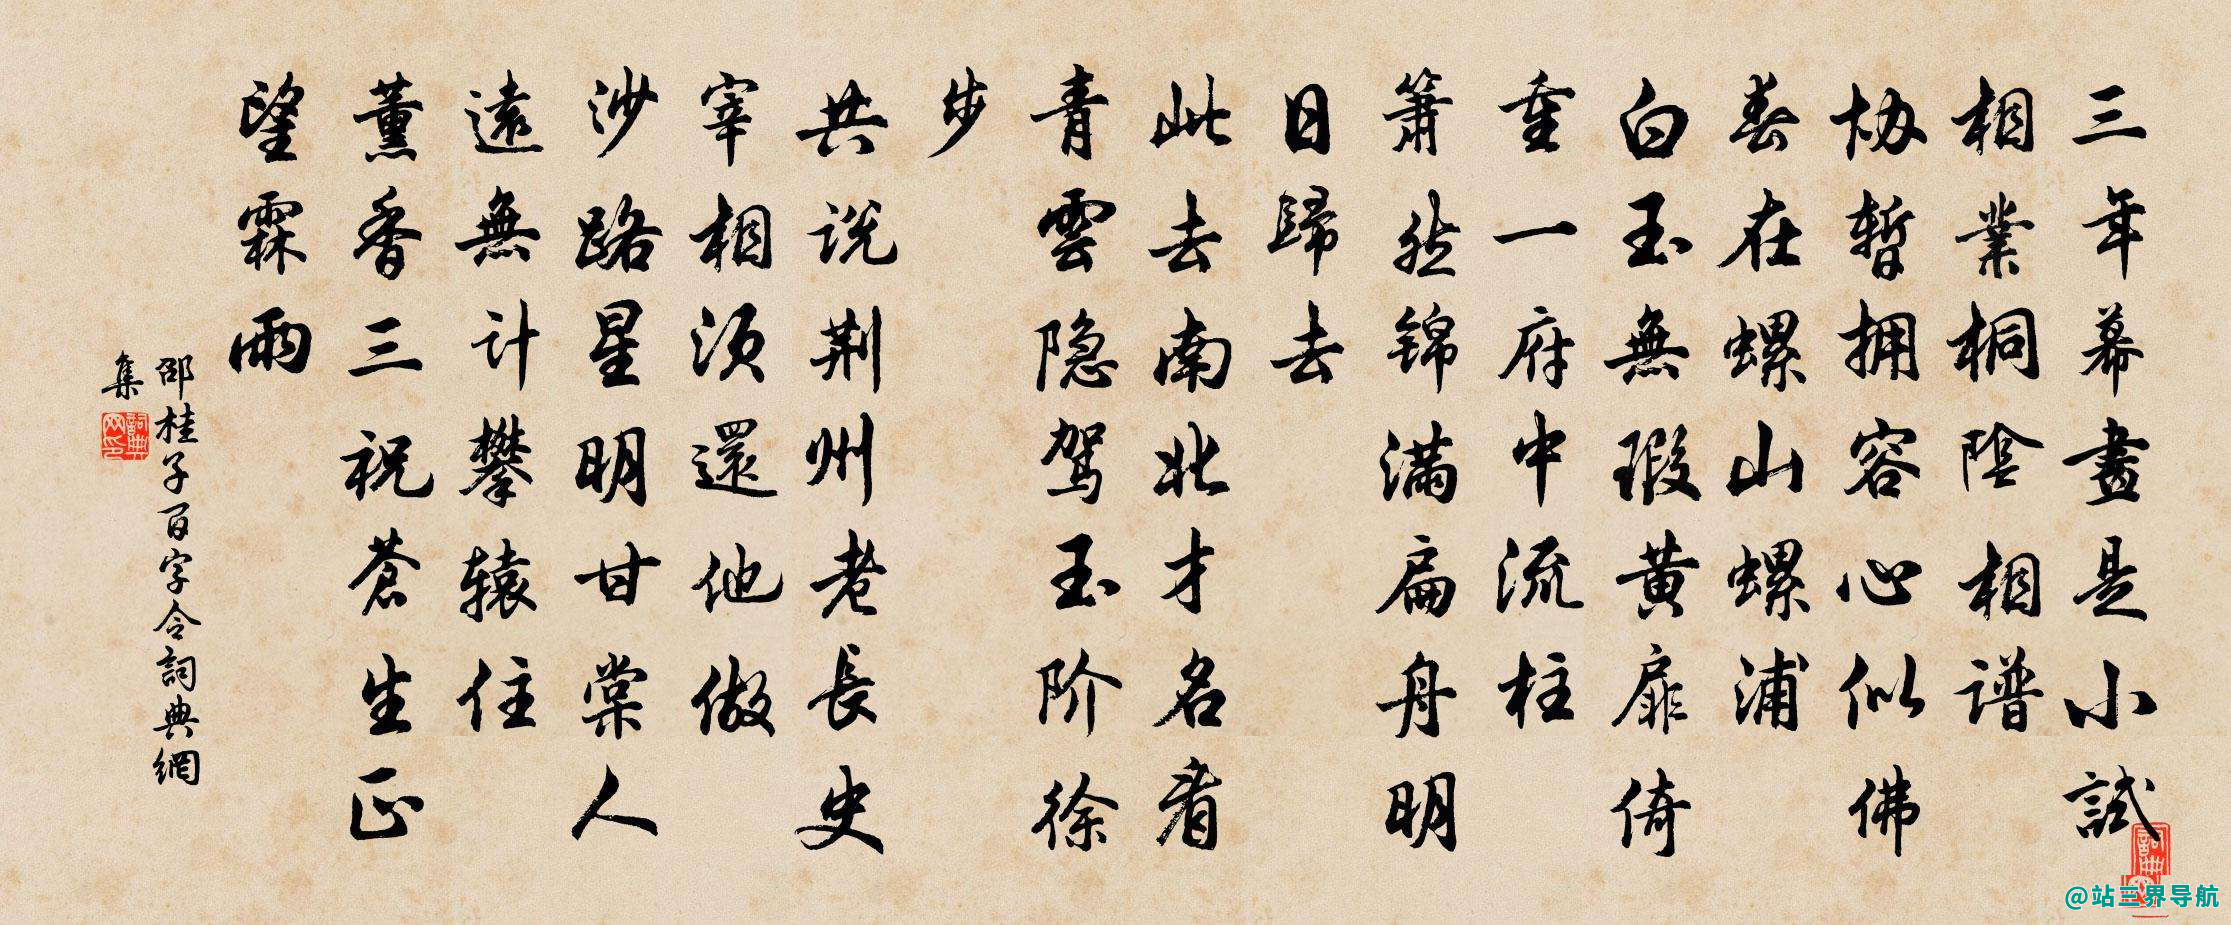 三年幕畫是小試
相業桐陰相譜
協暫拥容心似佛
春在螺山螺浦
白玉無瑕黄扉倚
重一府中流柱
箫然锦满扁舟明
日歸去
此去南北才名看
青雲隐驾玉阶徐
步
共说荆州老長史
宰相须還他做
沙路星明甘棠人
遠無计攀辕住
薰香三祝蒼生正
望霖雨
邵桂子百字令詞典網
集
詞典
网印
詞典
@站三界导航